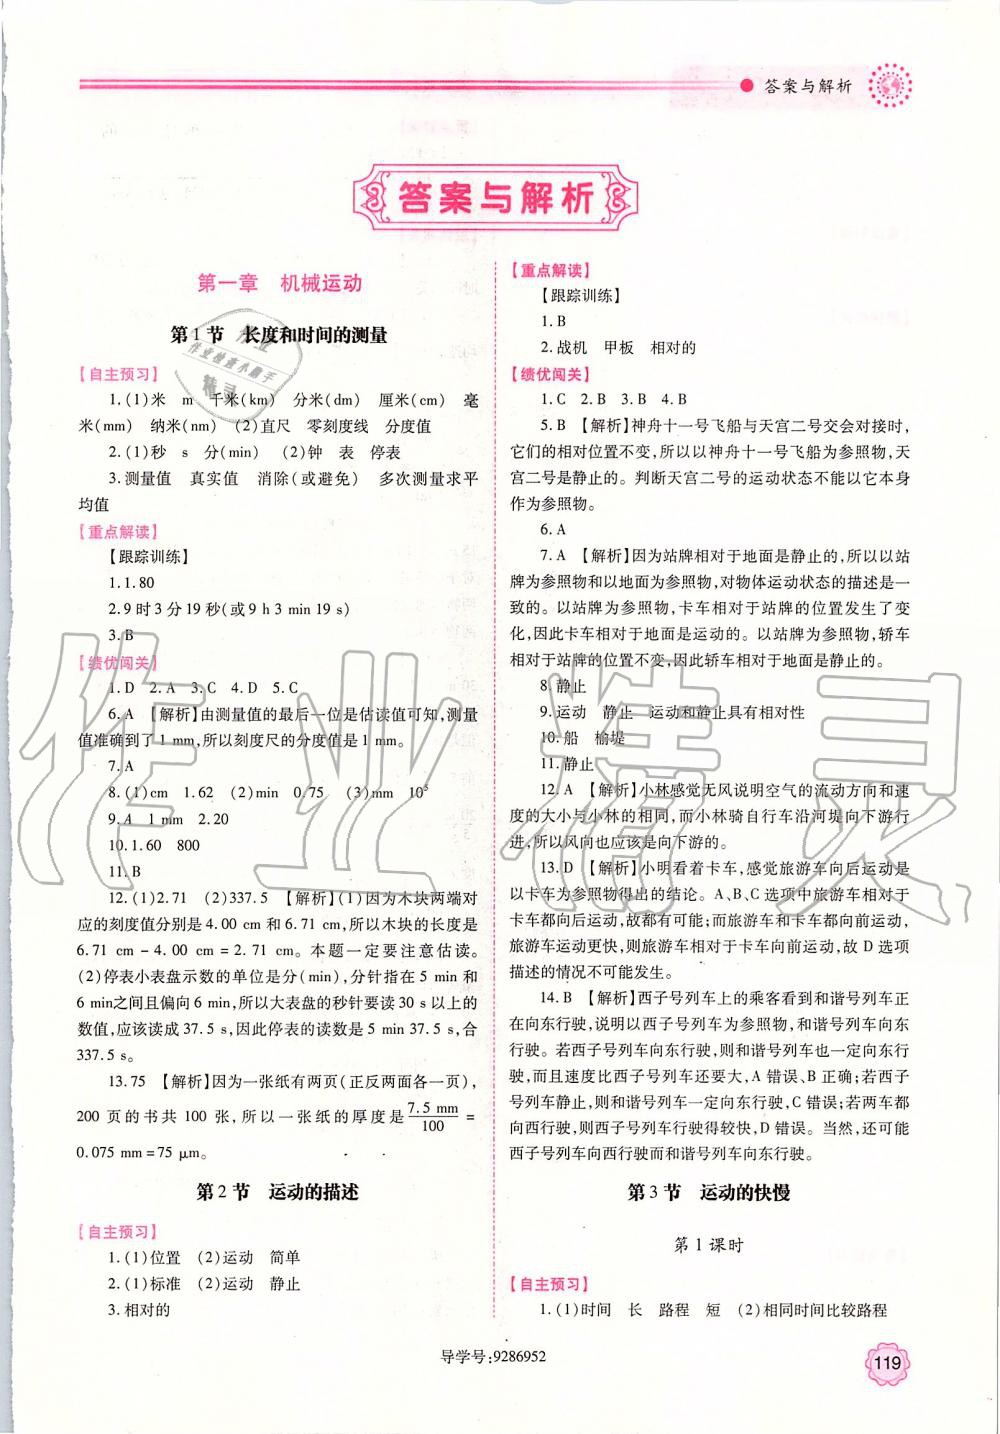 答案与解析
答案与解析
第一章 机械运动
第1节 长度和时间的测量
【自主预习】
1.(1)米 m 千米(km) 分米(dm) 厘米(cm) 毫
米(mm) 纳米(nm) (2)直尺 零刻度线 分度值
2.(1)秒 s 分(min) (2)钟 表 停表
3.测量值 真实值 消除(或避免) 多次测量求平
均值
【重点解读】
【跟踪训练】
1.1.80
2.9时3分19秒(或9 h 3 min 19 s)
3.B
【绩优闯关】
1.D 2.A 3.C 4.D 5.C
6.A 【解析】由测量值的最后一位是估读值可知,测量
值准确到了1 mm,所以刻度尺的分度值是1 mm。
7.A
8.(1)cm 1.62 (2)min 0.75 (3)mm 10⁵
9.A 1 mm 2.20
10.1.60 800
11.B
12.(1)2.71 (2)337.5 【解析】(1)因为木块两端对
应的刻度值分别是4.00 cm和6.71 cm,所以木块的长度是
6.71 cm－4.00 cm＝2.71 cm。本题一定要注意估读。
(2)停表小表盘示数的单位是分(min),分针指在5 min和
6 min之间且偏向6 min,所以大表盘的秒针要读30 s以上的
数值,应该读成37.5 s,因此停表的读数是5 min 37.5 s,合
337.5 s。
13.75 【解析】因为一张纸有两页(正反两面各一页),
200页的书共100张,所以一张纸的厚度是7.5 mm/100＝
0.075 mm＝75 μm。
第2节 运动的描述
【自主预习】
1.(1)位置 (2)运动 简单
2.(1)标准 (2)运动 静止
3.相对的
【重点解读】
【跟踪训练】
1.B
2.战机 甲板 相对的
【绩优闯关】
1.C 2.B 3.B 4.B
5.B 【解析】神舟十一号飞船与天宫二号交会对接时,
它们的相对位置不变,所以以神舟十一号飞船为参照物,天
宫二号是静止的。判断天宫二号的运动状态不能以它本身
作为参照物。
6.A
7.A 【解析】因为站牌相对于地面是静止的,所以以站
牌为参照物和以地面为参照物,对物体运动状态的描述是一
致的。以站牌为参照物,卡车相对于站牌的位置发生了变
化,因此卡车相对于地面是运动的。以站牌为参照物,轿车
相对于站牌的位置不变,因此轿车相对于地面是静止的。
8.静止
9.运动 静止 运动和静止具有相对性
10.船 榆堤
11.静止
12.A 【解析】小林感觉无风说明空气的流动方向和速
度的大小与小林的相同,而小林骑自行车沿河堤向下游行
进,所以风向也应该是向下游的。
13.D 【解析】小明看着卡车,感觉旅游车向后运动是
以卡车为参照物得出的结论。A、B、C选项中旅游车相对于
卡车都向后运动,故都有可能;而旅游车和卡车都向前运动,
旅游车运动更快,则旅游车相对于卡车向前运动,故D选项
描述的情况不可能发生。
14.B 【解析】西子号列车上的乘客看到和谐号列车正
在向东行驶,说明以西子号列车为参照物,和谐号列车向东
行驶。若西子号列车向东行驶,则和谐号列车也一定向东行
驶,而且速度比西子号列车还要大,A错误、B正确;若西子
号列车静止,则和谐号列车一定向东行驶,C错误;若两车都
向西行驶,则西子号列车行驶得较快,D错误。当然,还可能
西子号列车向西行驶而和谐号列车向东行驶。
第3节 运动的快慢
第1课时
【自主预习】
1.(1)时间 长 路程 短 (2)相同时间比较路程
导学号:9286952
119
作业精灵
作业
作业检查小助手
精灵